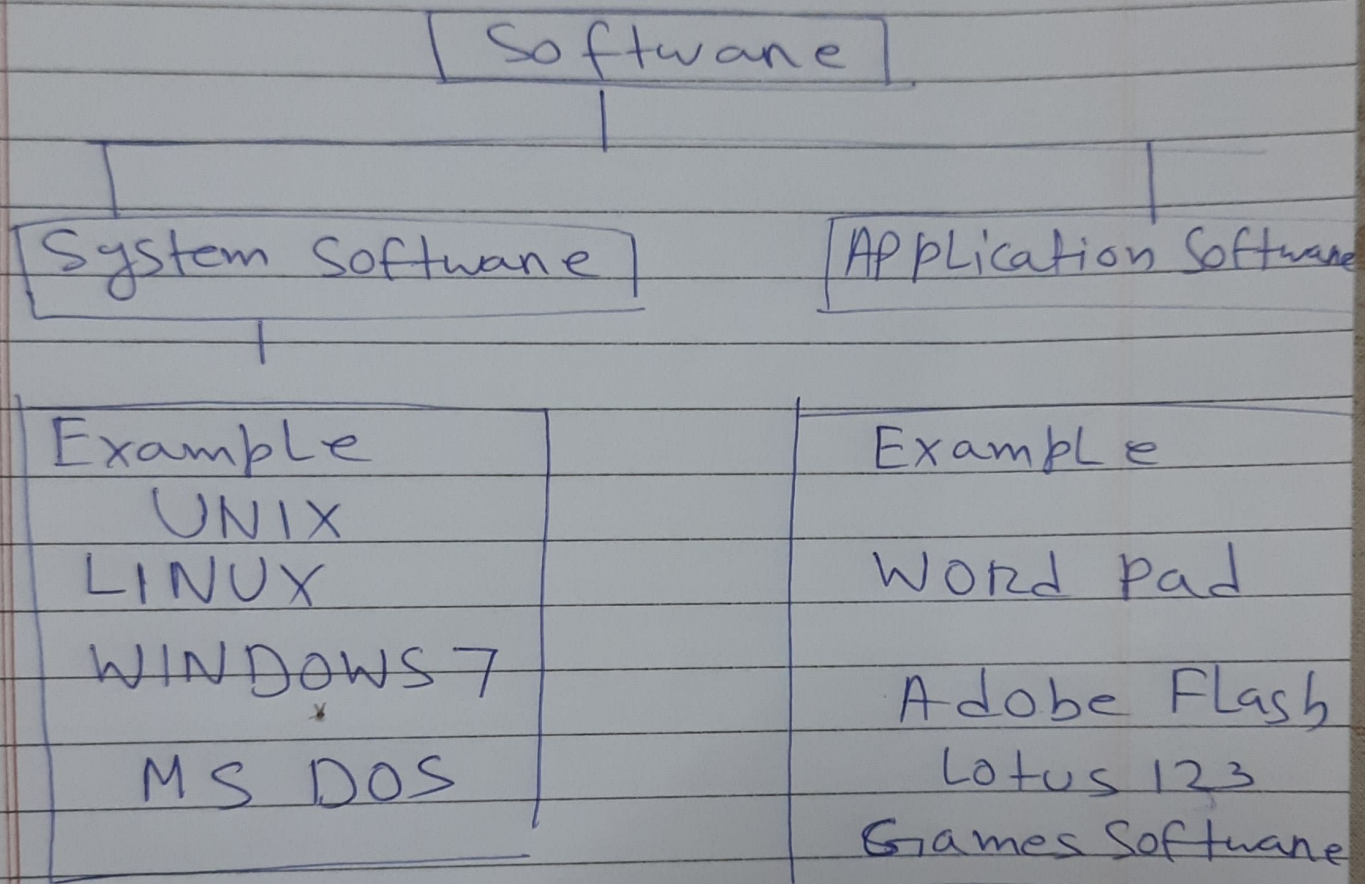 Software
System Software
Application Software
Example
UNIX
LINUX
WINDOWS 7
MS DOS
Example
Word Pad
Adobe Flash
Lotus 123
Games Software